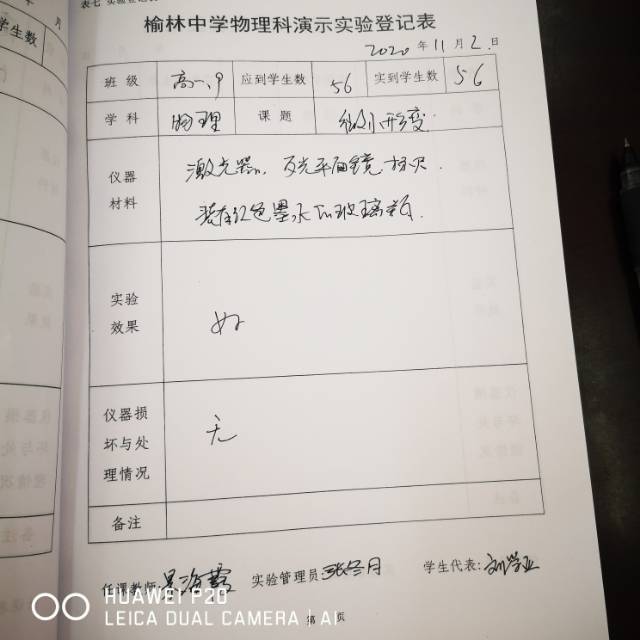 表七 实验登记表
榆林中学物理科演示实验登记表
2020 年 11 月 2 日
班 级 高一、9 应到学生数 56 实到学生数 56
学 科 物理 课 题 微小形变
仪器 激光器、反光平面镜、标尺、
材料 装有红色墨水的玻璃瓶.
实验
效果 好
仪器损
坏与处 无
理情况
备注
任课教师: 实验管理员: 张冬月 学生代表:
第 页
HUAWEI P20
LEICA DUAL CAMERA | AI
学生数
月